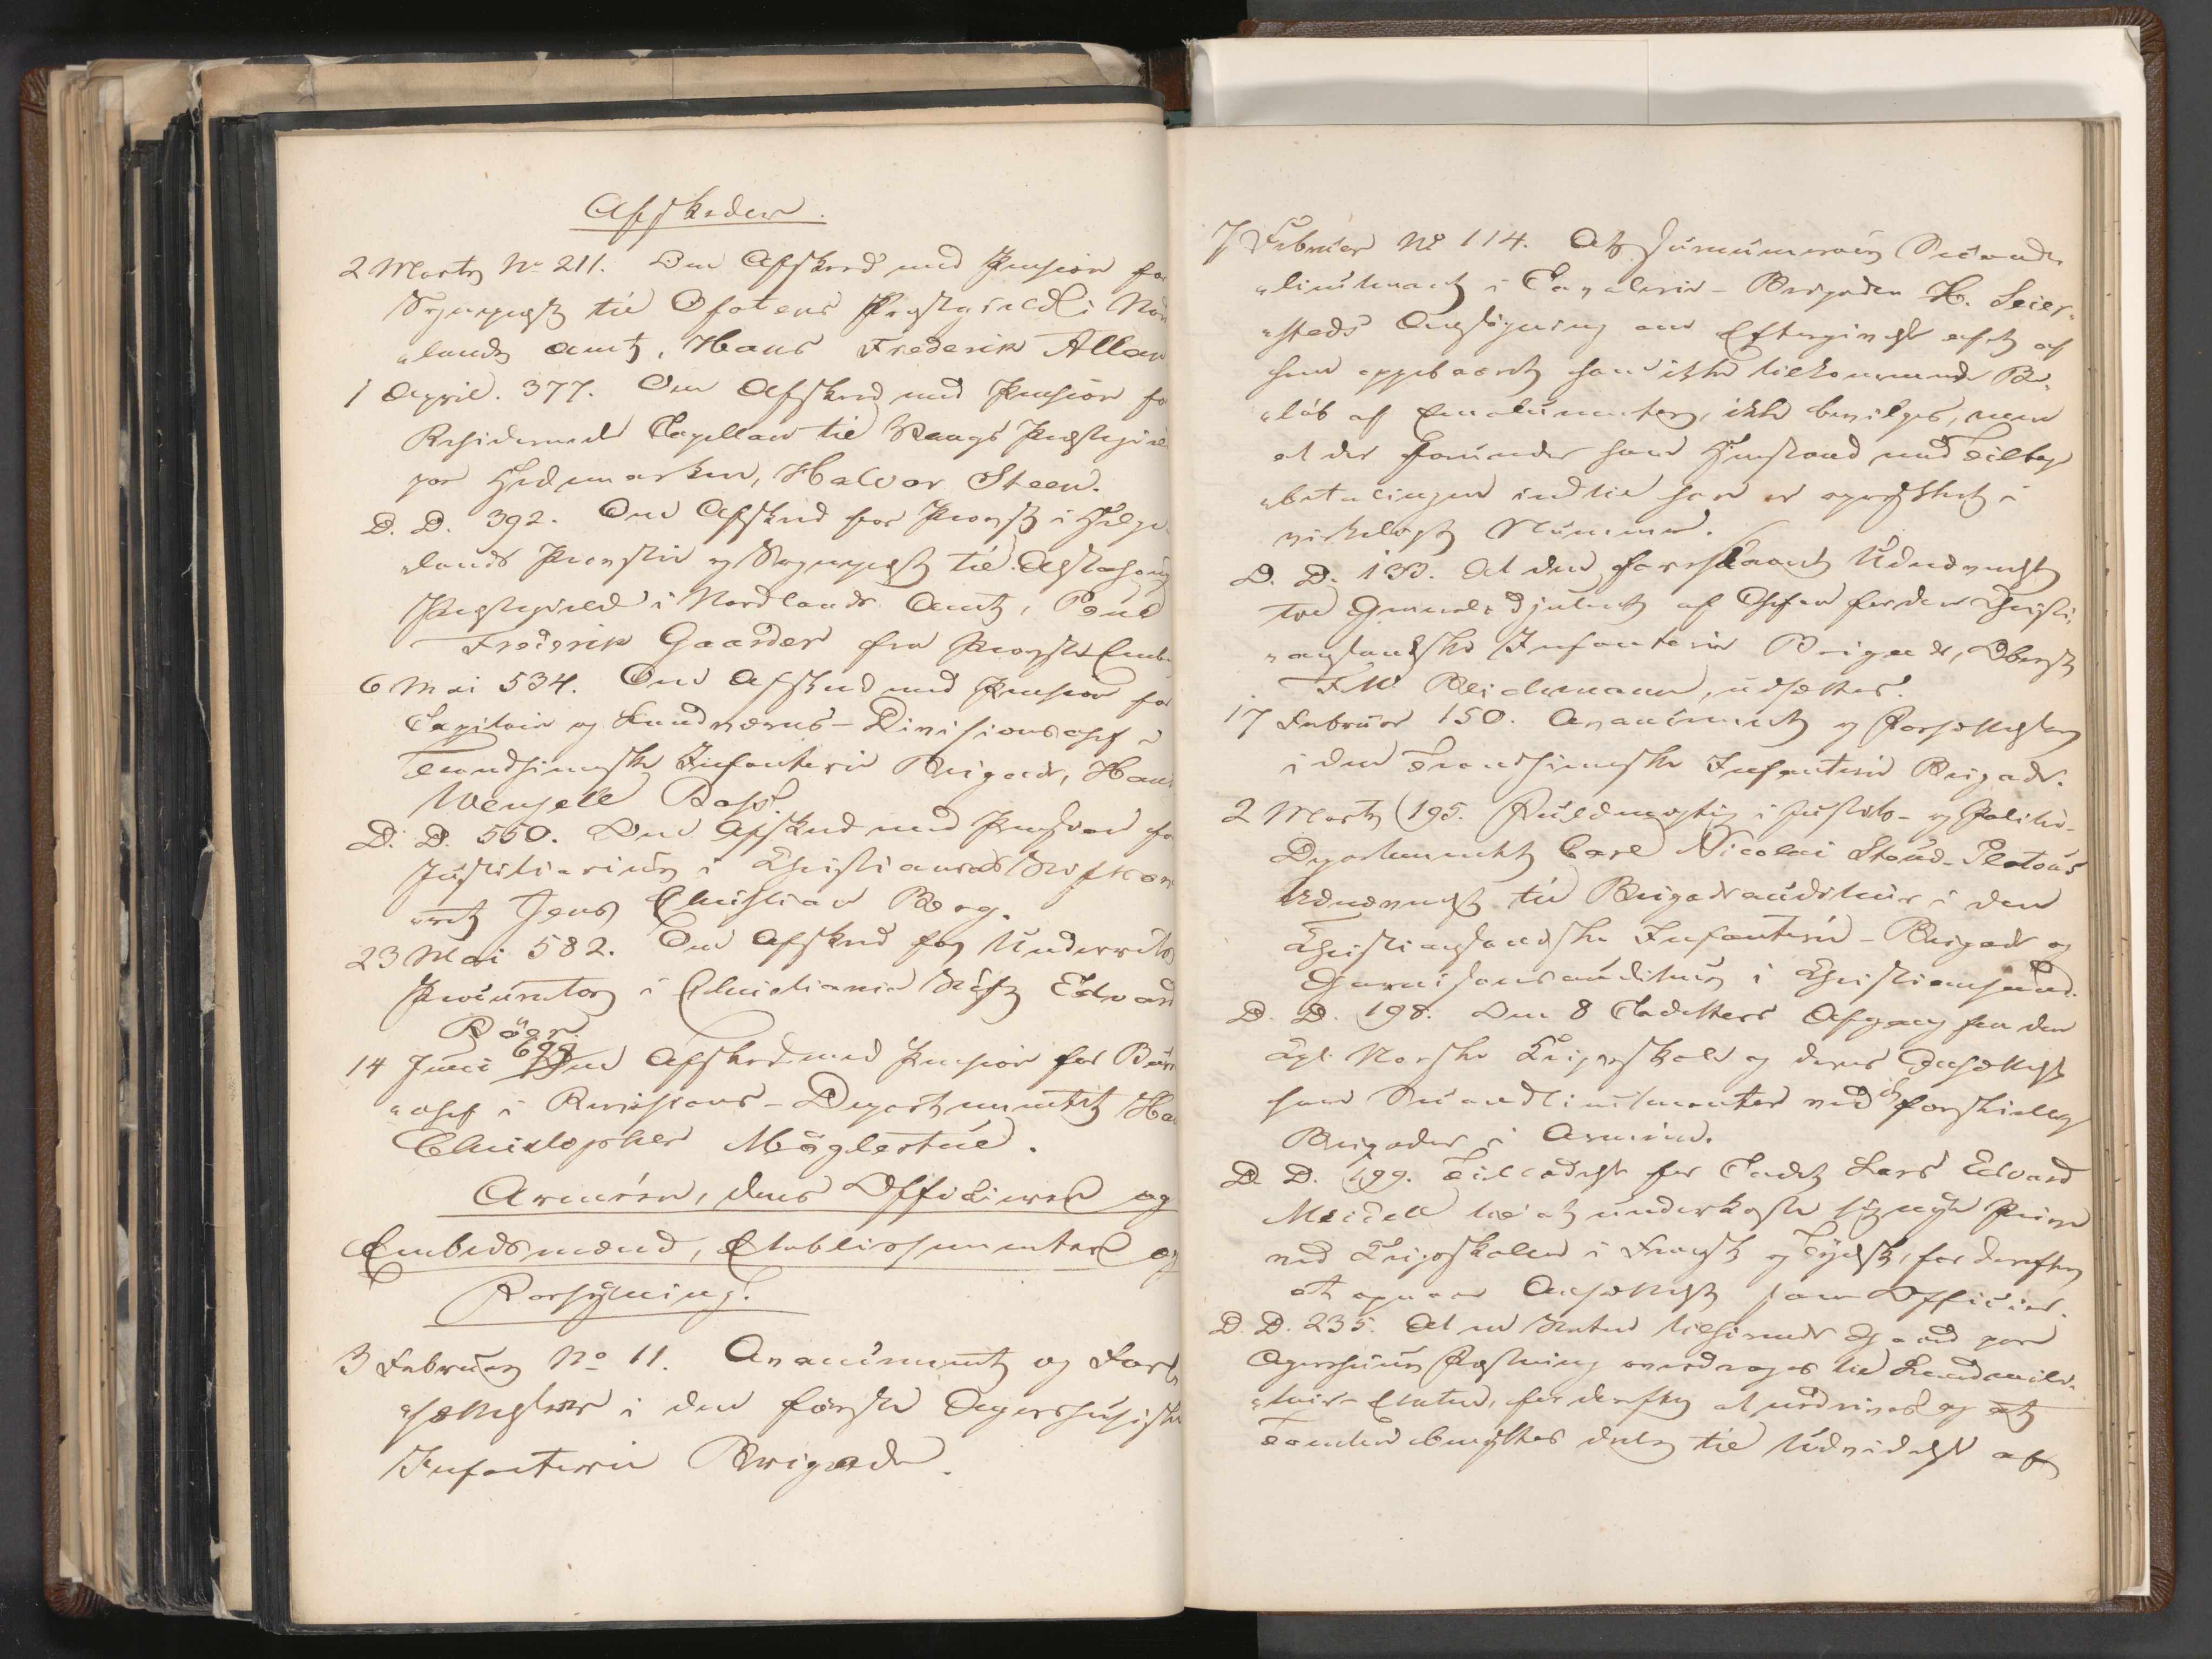 Afskeder.
2 Marts No 211. Om Afsked med Pension for
Sognepræst til Ofotens Præstegield i Nord
"lands Amt, Hans Frederik Allan
1 April. 377. Om Afsked med Pension fo
Residerende Capellan til Vangs Præstegiel
paa Hedemarken, Halvor Steen.
D. D. 392. Om Afsked for Provst i Helge
"lands Provstie og Sognepræst til Alstahoug
Præstegield i Nordlands Amt, Poul
Frederik Gaarder fra Provste Emb
6 Mai 534. Om Afsked med Pension for
Capitain og Landværns-Divisionschef i
Trondhjemske Infanterie Brigade, Hans
Wensell Bass.
D. D. 550. Om Afsked med Pension for
Justitiarius i Christiansands Stiftsover
"ret Jens Christian Berg.
23 Mai 582. Om Afsked for Underrets
Procurator i Christiania Stift Edvard
Böer.
14 Juni 698 Om Afsked med Pension for Bur
"chef i Revisions-Departementet Ha
Christopher Möglestue.
Armeen, dens Officierer og
Embedsmænd, Etablissementer og
Forsyning.
3 Februar No 11. Avancement og For
"sættelser i den første Agershusiske
Infanterie Brigade.
7 Februar No 114. At surnumerair Seconde
"lieutenant i Cavalerie-Brigaden H. Seier
"steds Ansögning om Eftergivelse af et af
ham oppebaaret ham ikke tilkommende Be
"löb af Emolumenter, ikke bevilges, men
at der forundes ham Henstand med Tilbage
"betalingen indtil han er oprykket i
virkeligt Nummer.
D. D. 133. At den foreslaaet Udnævnelse
til Generaladjutant af Chefen for den Christi
"ansandske Infanterie Brigade, Oberst
F. W. Bleichmann, udsættes.
17 Februar 150. Avancement og Forsættelser
i den Trondhjemske Infanterie Brigade.
2 Marts 195. Fuldmægtig i Justits- og Politie-
Departementet Carl Nicolai Stoud-Platous
Udnævnelse til Brigadeauditeur i den
Christiansandske Infanterie-Brigade og
Garnisonsauditeur i Christiansand.
D. D. 198. Om 8 Cadetters Afgang fra den
Kgl. Norske Krigsskole og deres Ansættelse
som Secondlieutenanter ved de forskiellige
Brigader i Armeen.
D. D. 199. Tilladelse for Cadet Lars Edvard
Meidell til at underkaste sig nye Pröve
ved Krigsskolen i Fransk og Tydsk, for derefter
at opnaae Ansættelse som Officier.
D. D. 235. At en Staten tilhörende Gaard paa
Agershuus Fæstning overdrages til Landmili-
"tair-Etaten, for derefter at nedrives og at
Tomten benyttes deels til Udvidelse af